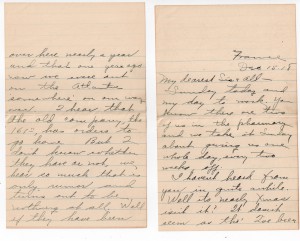 France
Dec 15-18
My dearest Sis & all—
Sunday today and
my day to work. You
know there are two
of us in the pharmacy
and we take it
about giving us one
whole day, every two
weeks off.
I haven't heard from
you in quite awhile.
Well to nearly Xmas
isn't it? It don't
seem as tho' I've been
over here nearly a year
and that one year ago
now we were out
on the Atlantic
somewhere on our way
over. I hear that
the old company the
161st, has orders to
go home. But I
don't know whether
they have or not, we
hear so much that is
only rumor and
turns out to be
nothing at all. Well
if they have been